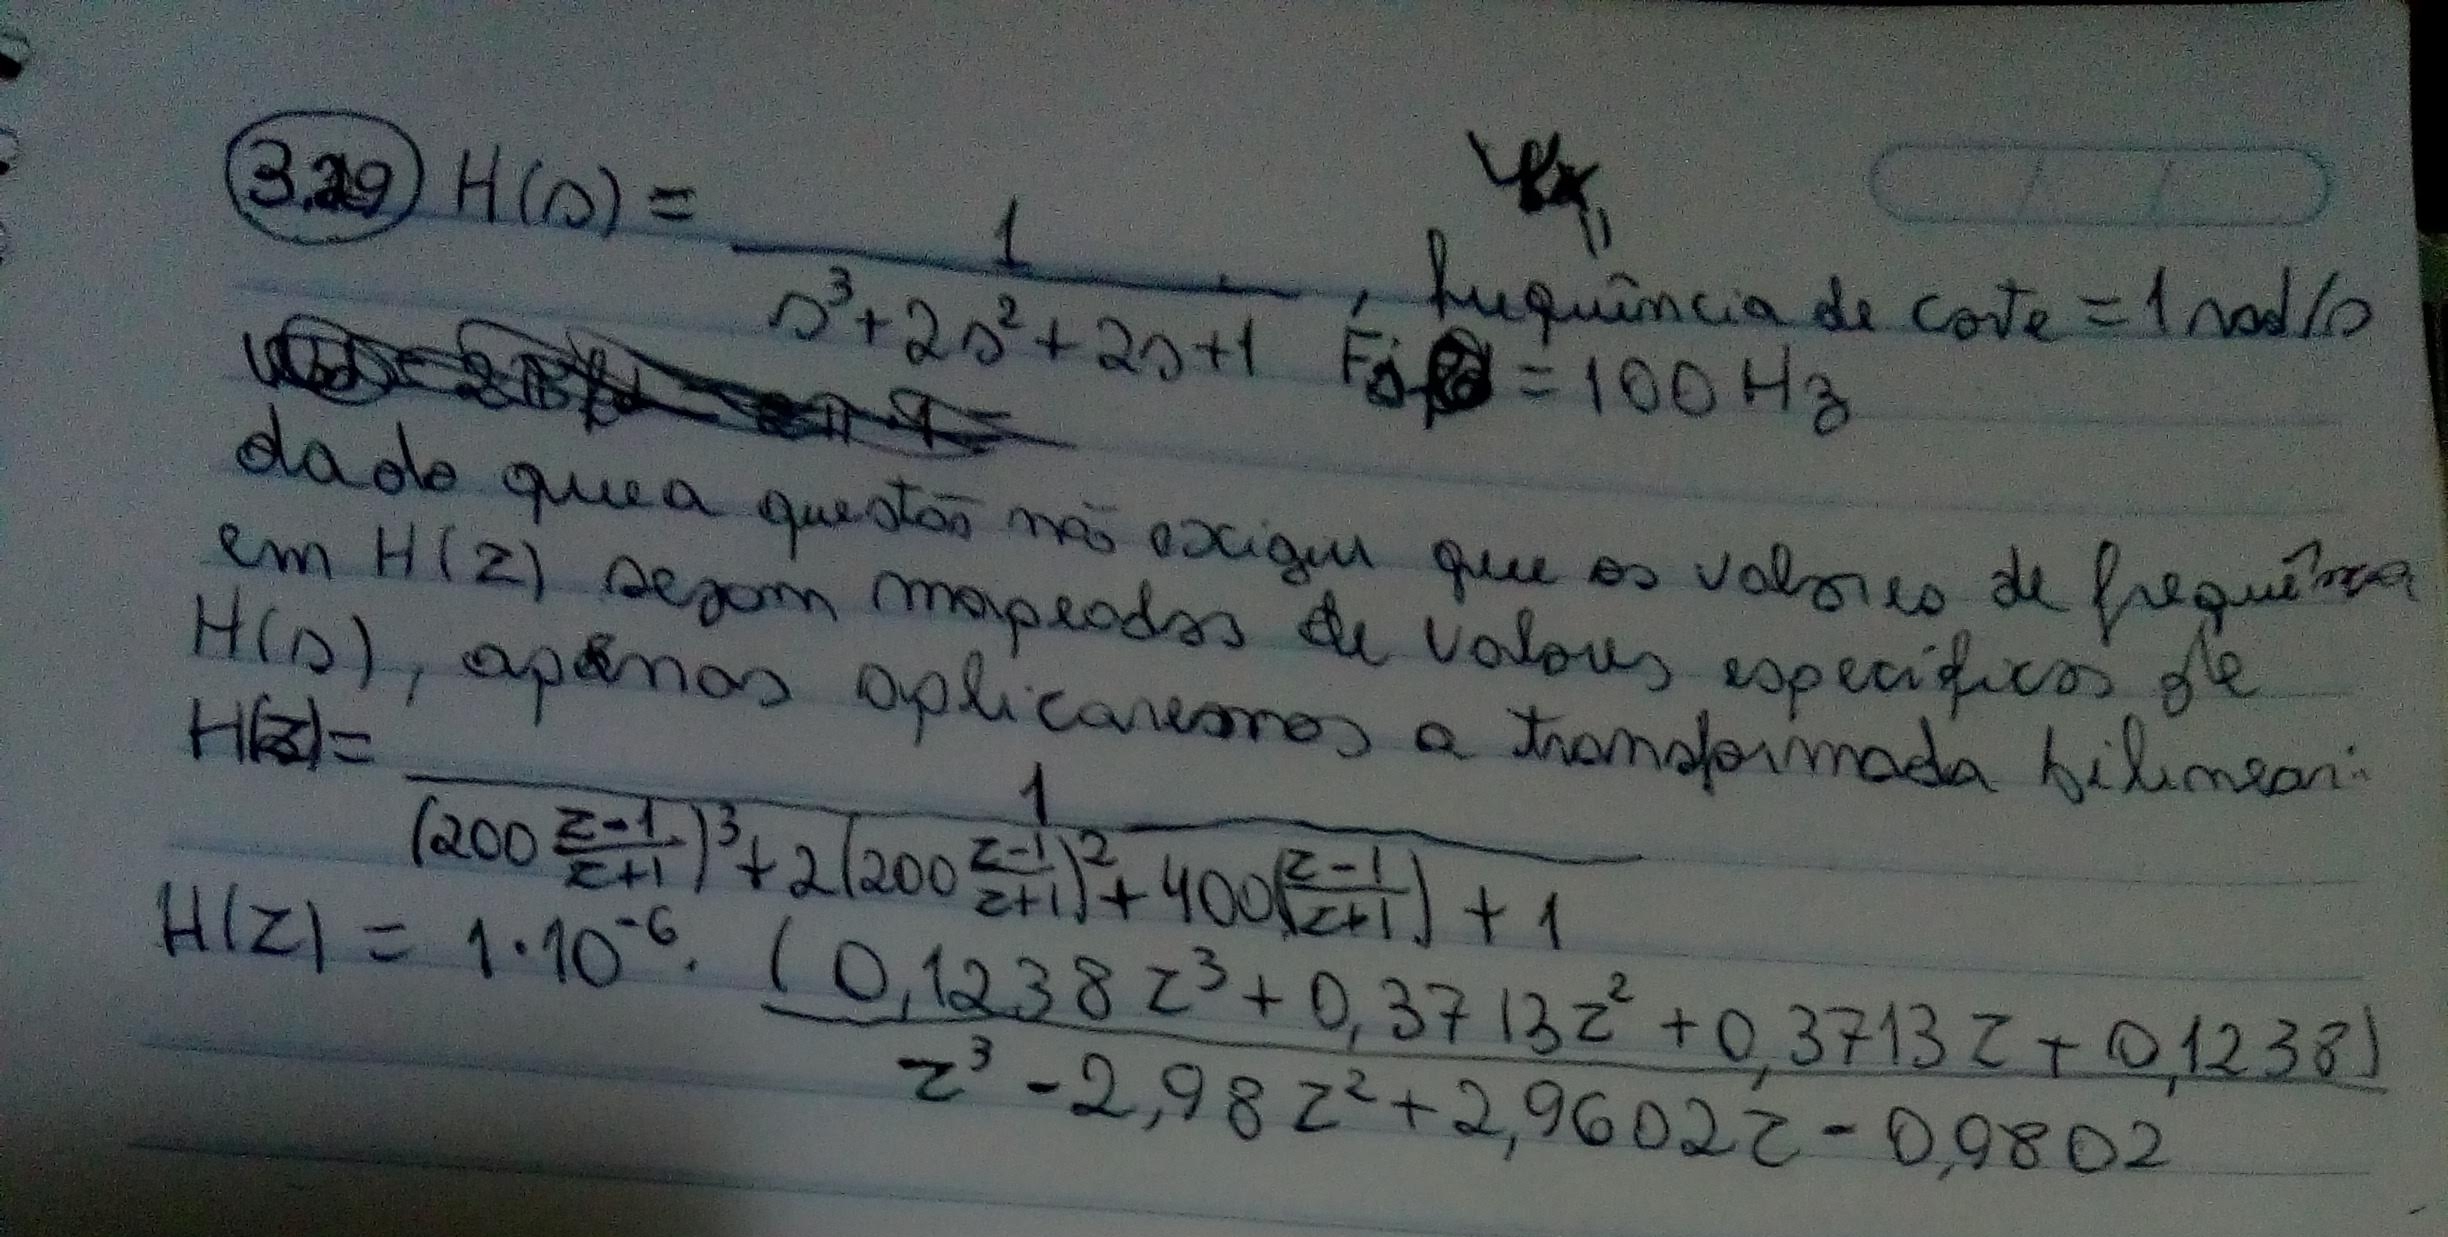 3.29 H(s) = 1 / (s³ + 2s² + 2s + 1) , frequência de corte = 1 rad/s
Fs = 100 Hz
dado que a questão não exigiu que os valores de frequência
em H(z) sejam mapeados de valores específicos de
H(s), apenas aplicaremos a transformada bilinear:
H(z) = 1 / ((200 (z-1)/(z+1))³ + 2(200 (z-1)/(z+1))² + 400((z-1)/(z+1)) + 1)
H(z) = 1·10⁻⁶ · (0,1238z³ + 0,3713z² + 0,3713z + 0,1238) / (z³ - 2,98z² + 2,9602z - 0,9802)